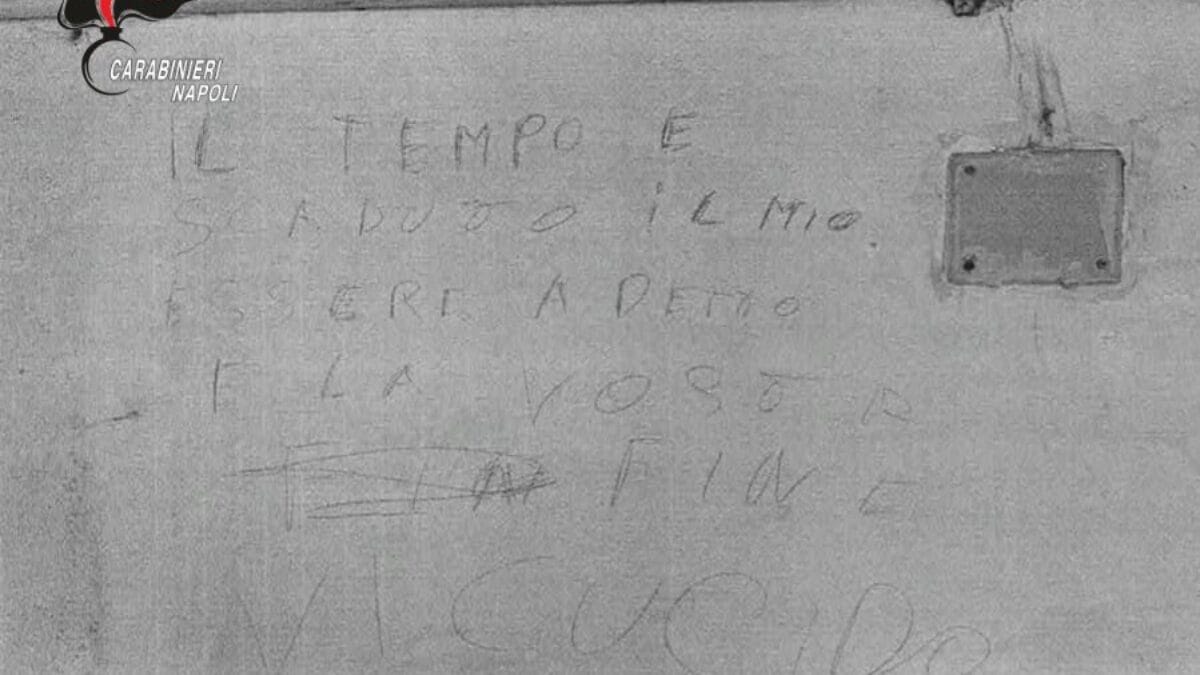 CARABINIERI
NAPOLI
IL TEMPO E
SCADUTO IL MIO.
ESSERE A DETTO
E LA VOSTRA
FINE
VI CUCIRO